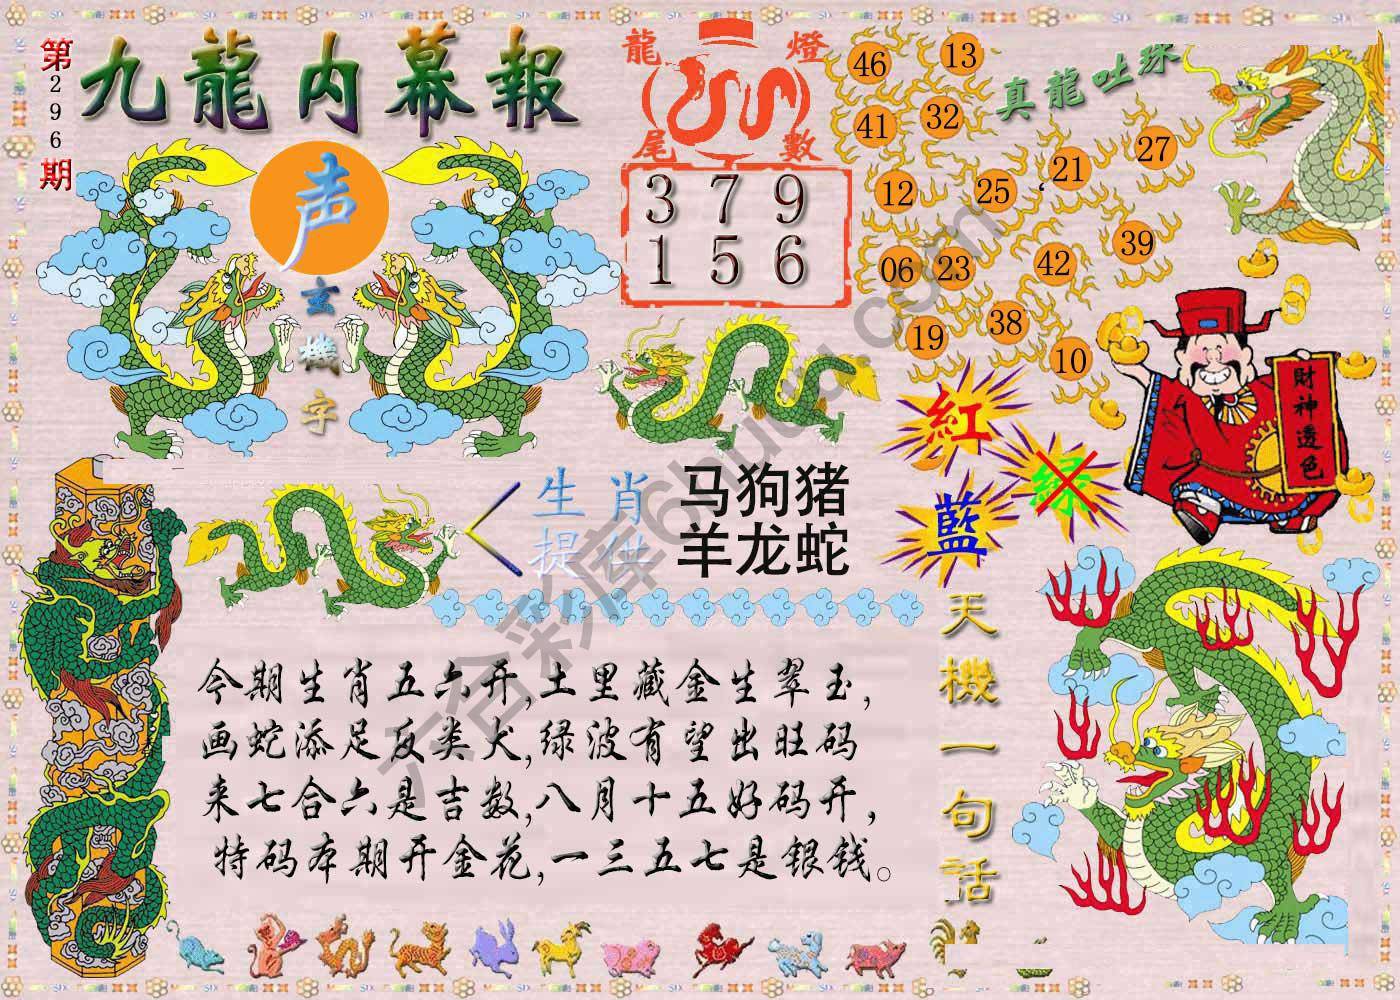 第296期
九龍内幕報
声
玄機字
龍燈
尾數
3 7 9
1 5 6
真龍吐珠
46 13
41 32
12 25 21 27
06 23 42 39
19 38 10
財神透色
紅
绿
藍
生肖提供
马狗猪
羊龙蛇
天機一句话
今期生肖五六开,土里藏金生翠玉,
画蛇添足反类犬,绿波有望出旺码
来七合六是吉数,八月十五好码开,
特码本期开金花,一三五七是银钱。
六合彩库6huuu.com